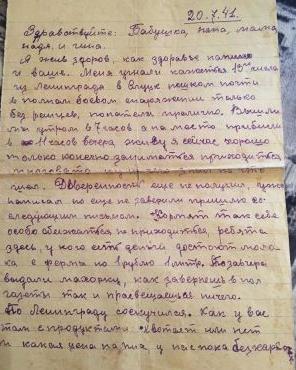 20.7.41.
Здравствуйте: Бабушка, папа, мама
надя, и гина.
Я жив здоров, как здоровье папино
и ваше. Меня угнали кажется 13 числа
из Ленинграда в Влуки пешком почти
в полном боевом снаряжении только
без ранцев, попотели прилично. Вышли
мы утром в 7 часов а на место прибыли
в 11 часов вечера, живу я сейчас хорошо
только конечно заниматься приходится
Доверенность еще не получил, уже
написал но еще не заверили пришлю во
следующим письмом. Кормят так себе
особо обижаться не приходится ребята
здесь, у кого есть деньги достают моло-
ка с ферма по 1 рублю 1 литр. Позавчера
выдали махорку, как завернешь в пол
газеты так и просвещаешься ничего.
По Ленинграду соскучился. Как у вас
там с продуктами хватает или нет
и какая цена на них у нас пока без карто